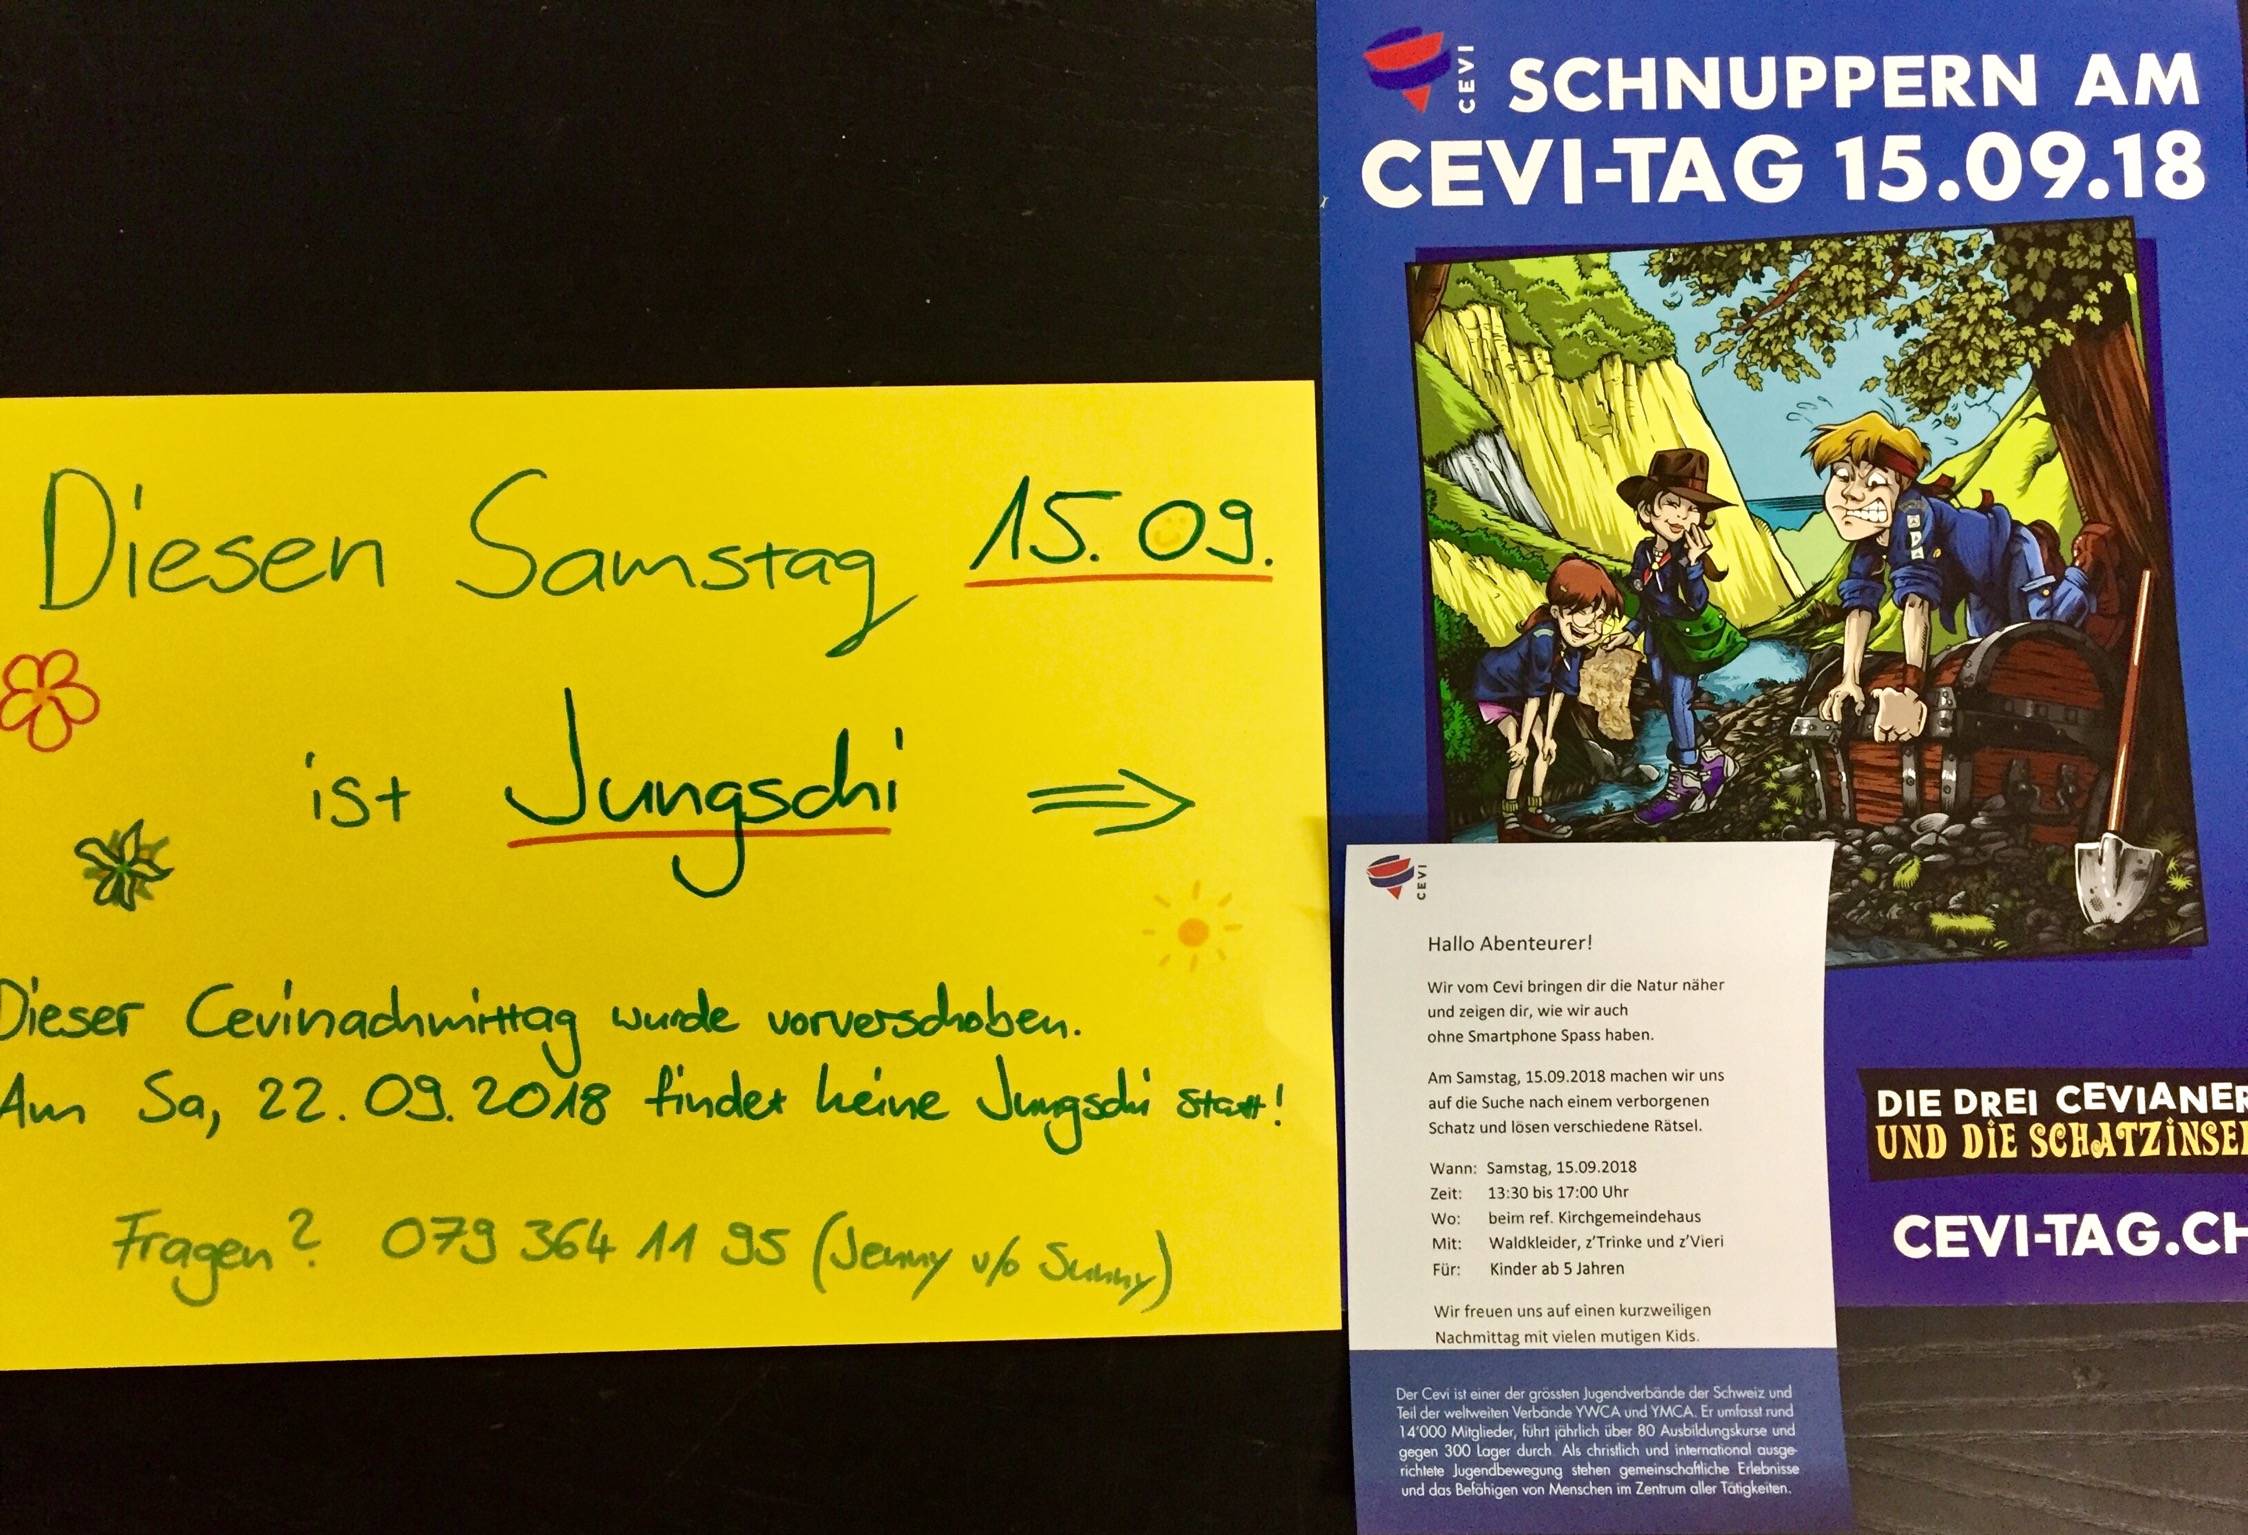 Diesen Samstag 15.09.
ist Jungschi ⇒
Dieser Cevinachmittag wurde vorverschoben.
Am Sa, 22.09.2018 findet keine Jungschi statt!
Fragen? 079 364 11 95 (Jenny v/o Sunny)
CEVI
SCHNUPPERN AM
CEVI-TAG 15.09.18
CEVI
Hallo Abenteurer!
Wir vom Cevi bringen dir die Natur näher
und zeigen dir, wie wir auch
ohne Smartphone Spass haben.
Am Samstag, 15.09.2018 machen wir uns
auf die Suche nach einem verborgenen
Schatz und lösen verschiedene Rätsel.
Wann: Samstag, 15.09.2018
Zeit: 13:30 bis 17:00 Uhr
Wo: beim ref. Kirchgemeindehaus
Mit: Waldkleider, z'Trinke und z'Vieri
Für: Kinder ab 5 Jahren
Wir freuen uns auf einen kurzweiligen
Nachmittag mit vielen mutigen Kids.
Der Cevi ist einer der grössten Jugendverbände der Schweiz und
Teil der weltweiten Verbände YWCA und YMCA. Er umfasst rund
14'000 Mitglieder, führt jährlich über 80 Ausbildungskurse und
gegen 300 Lager durch. Als christlich und international ausge-
richtete Jugendbewegung stehen gemeinschaftliche Erlebnisse
und das Befähigen von Menschen im Zentrum aller Tätigkeiten.
DIE DREI CEVIANER
UND DIE SCHATZINSEL
CEVI-TAG.CH